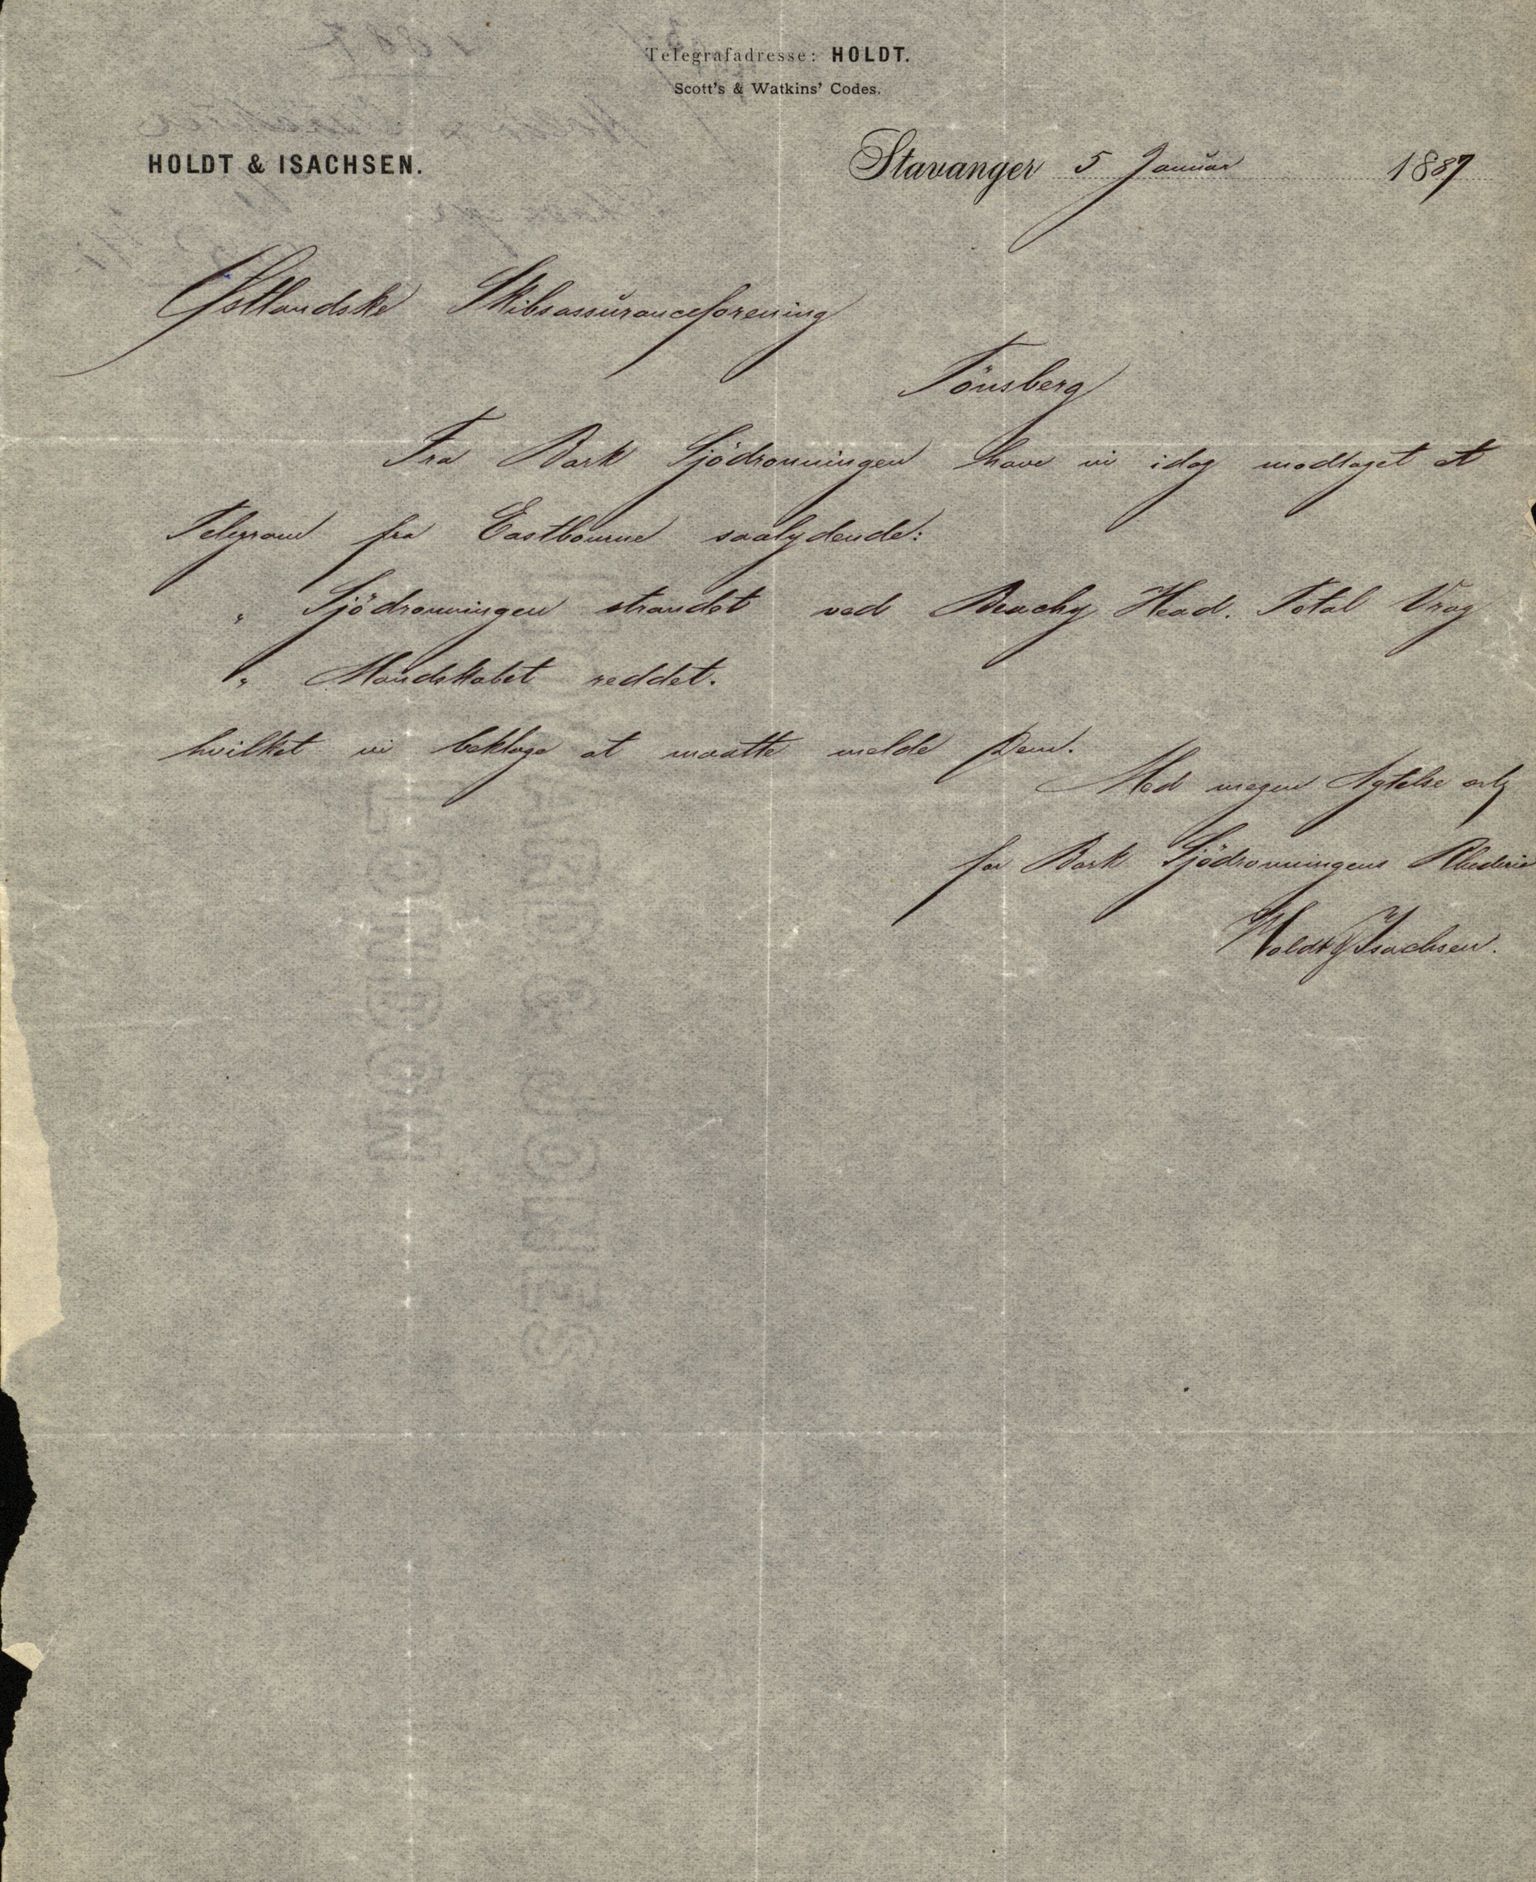 Telegrafadresse: HOLDT.
Scott's & Watkins' Codes.
HOLDT & ISACHSEN.
Stavanger 5 Januar 1887
Østlandske Skibsassuranceforening
Tönsberg
Fra Bark Sjödronningen have vi idag modtaget et
Telegram fra Eastbourne saalydende:
" Sjödronningen strandet ved Beachy Head. Total Vrag
" Mandskabet reddet.
hvilket vi beklage at maatte melde Dem.
Med megen Agtelse
for Bark Sjödronningens Rhederie
Holdt & Isachsen.